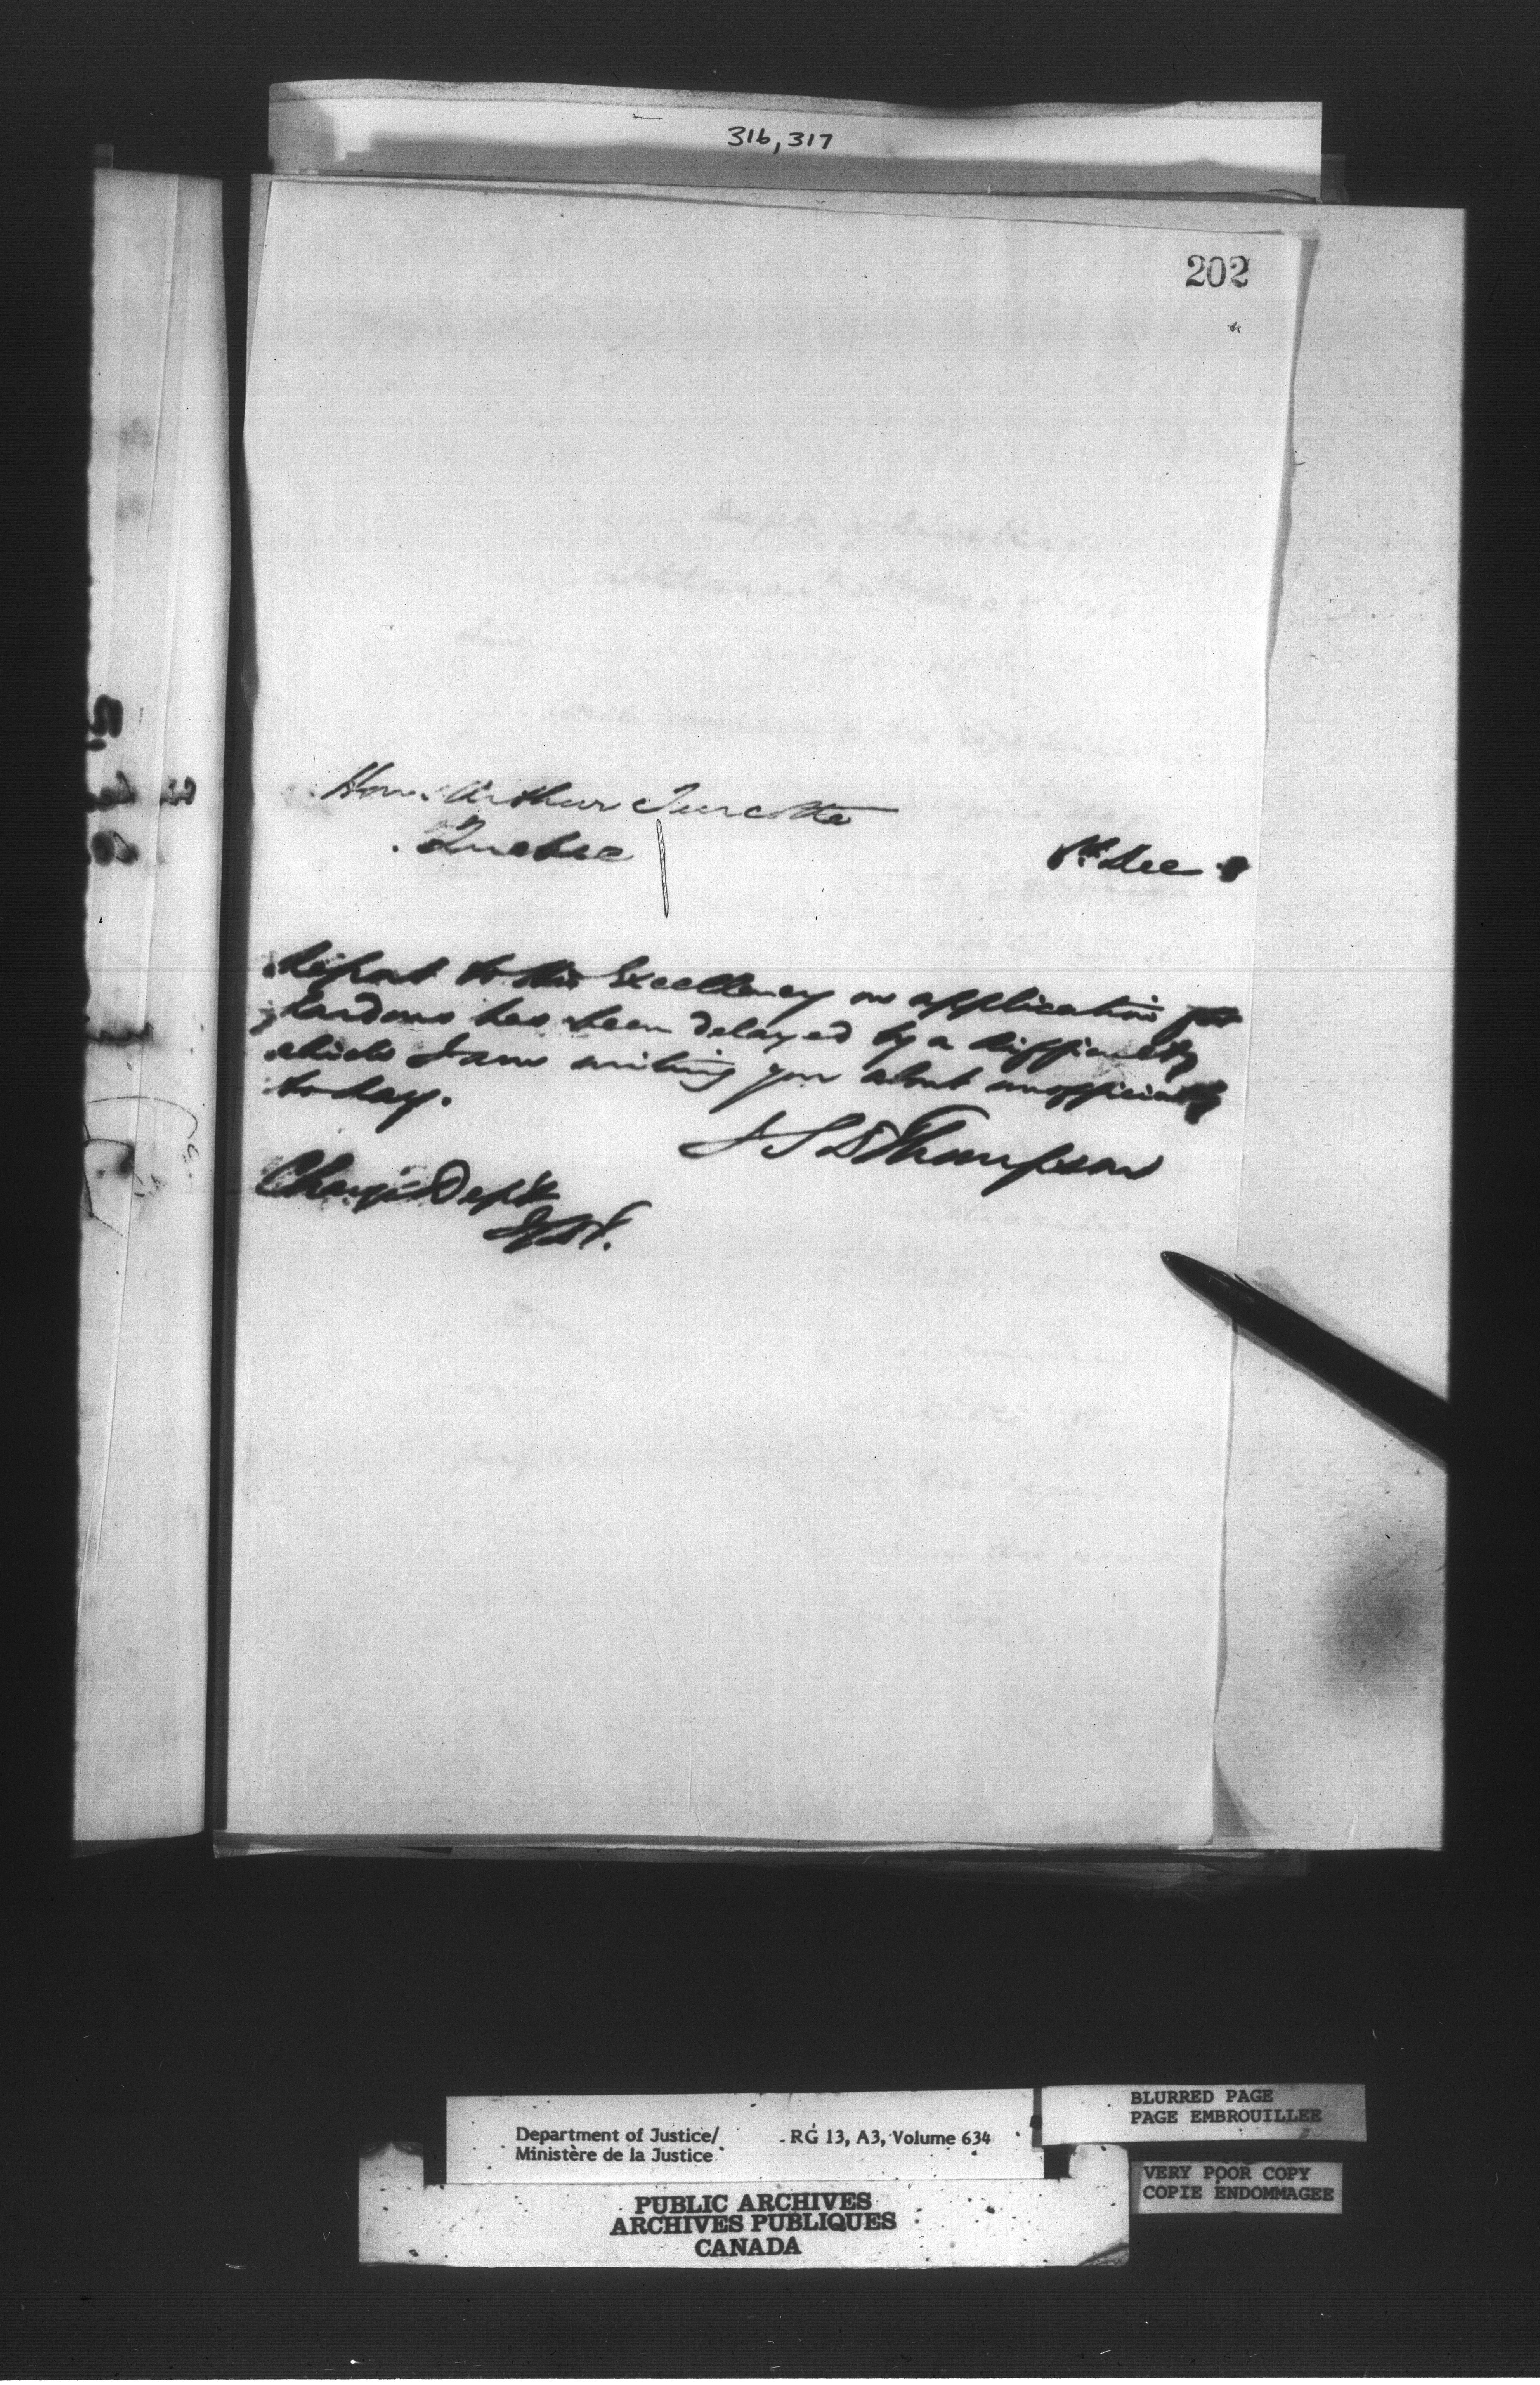 316, 317
202
Hon. Arthur Turcotte
Quebec
8th Dec
Report to His Excellency on application for
pardons has been delayed by a difficulty
which I am writing you about unofficially
to day.
J S D Thompson
Charge Dept
JSDT.
Department of Justice/
Ministère de la Justice
RG 13, A3, Volume 634
BLURRED PAGE
PAGE EMBROUILLEE
VERY POOR COPY
COPIE ENDOMMAGEE
PUBLIC ARCHIVES
ARCHIVES PUBLIQUES
CANADA